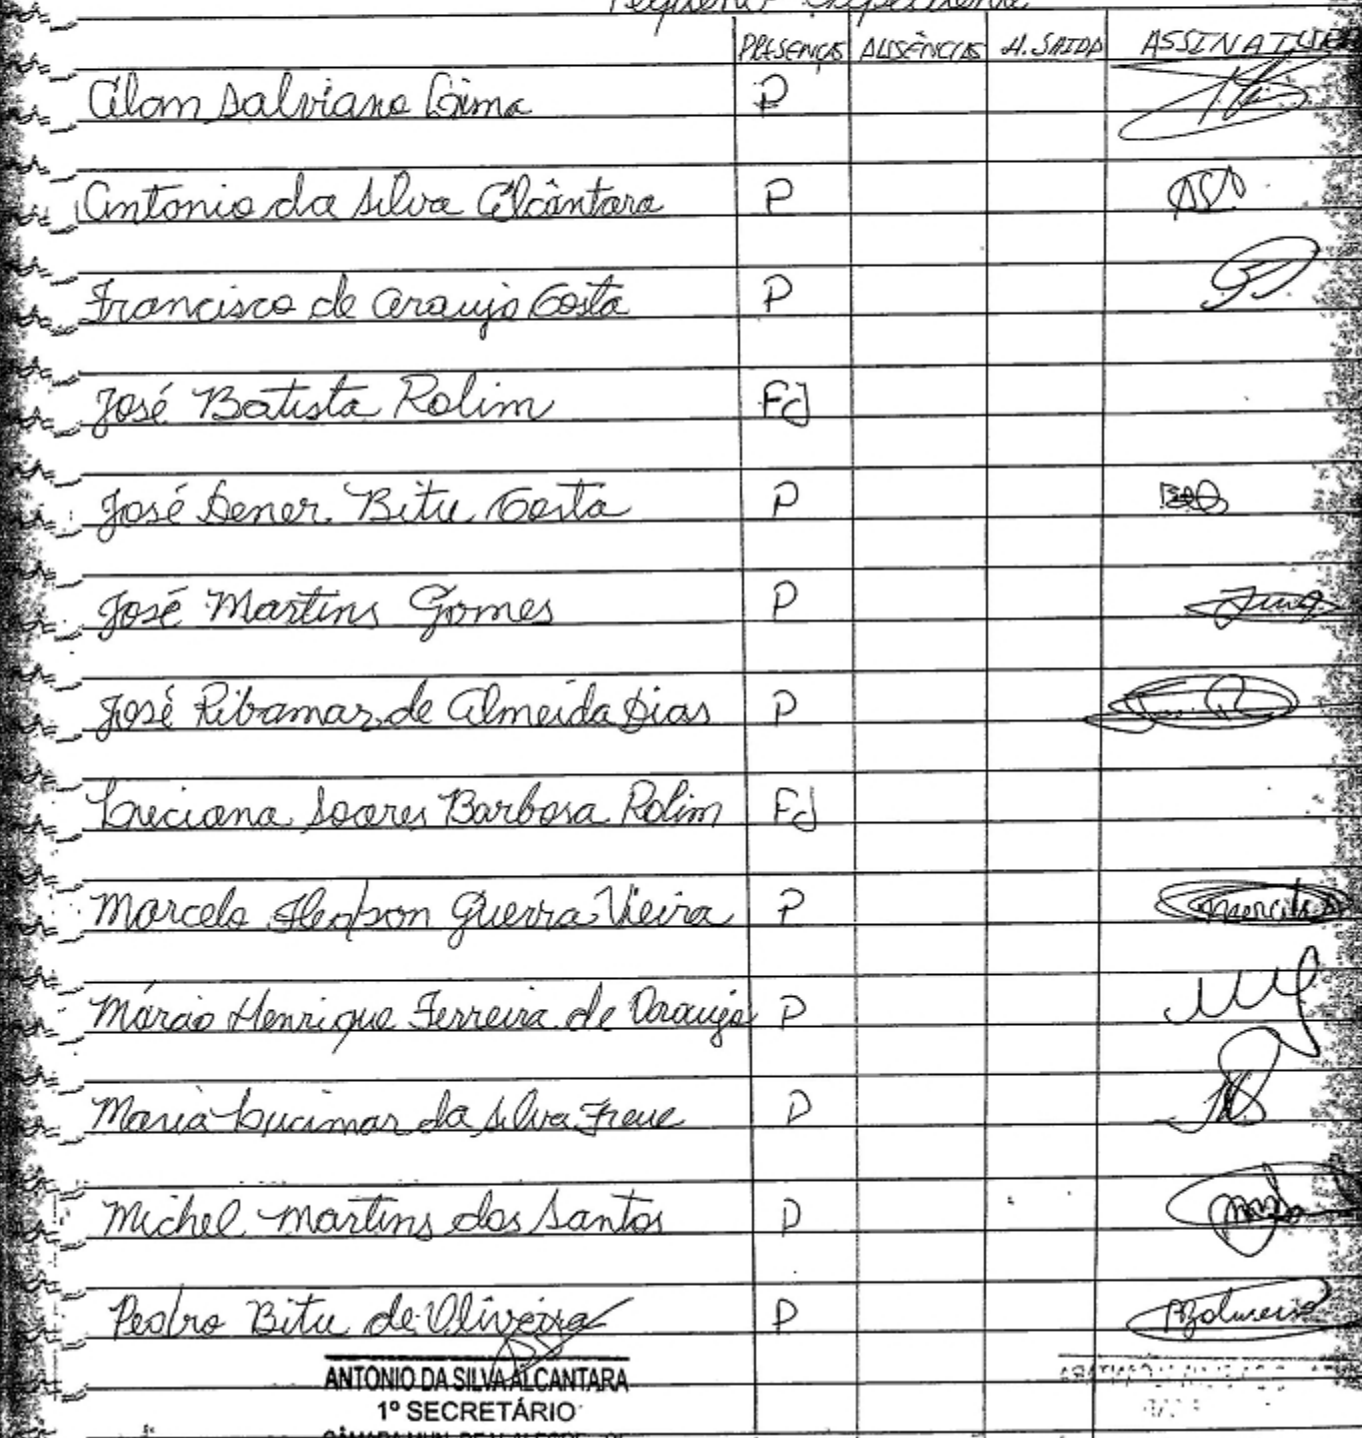 Pequeno Expediente
PRESENÇAS AUSÊNCIAS H. SAIDA ASSINATURA
Alan Salviano Lima P
Antonio da Silva Alcântara P
Francisco de Araujo Costa P
José Batista Rolim FJ
José Dener Bitu Costa P
José Martins Gomes P
José Ribamar de Almeida Dias P
Luciana Soares Barbosa Rolim FJ
Marcelo Guerra Vieira P
Márcio Henrique Ferreira de Araujo P
Maria Lucimar da Silva Freire P
Michel Martins dos Santos P
Pedro Bitu de Oliveira P
ANTONIO DA SILVA ALCANTARA
1º SECRETÁRIO